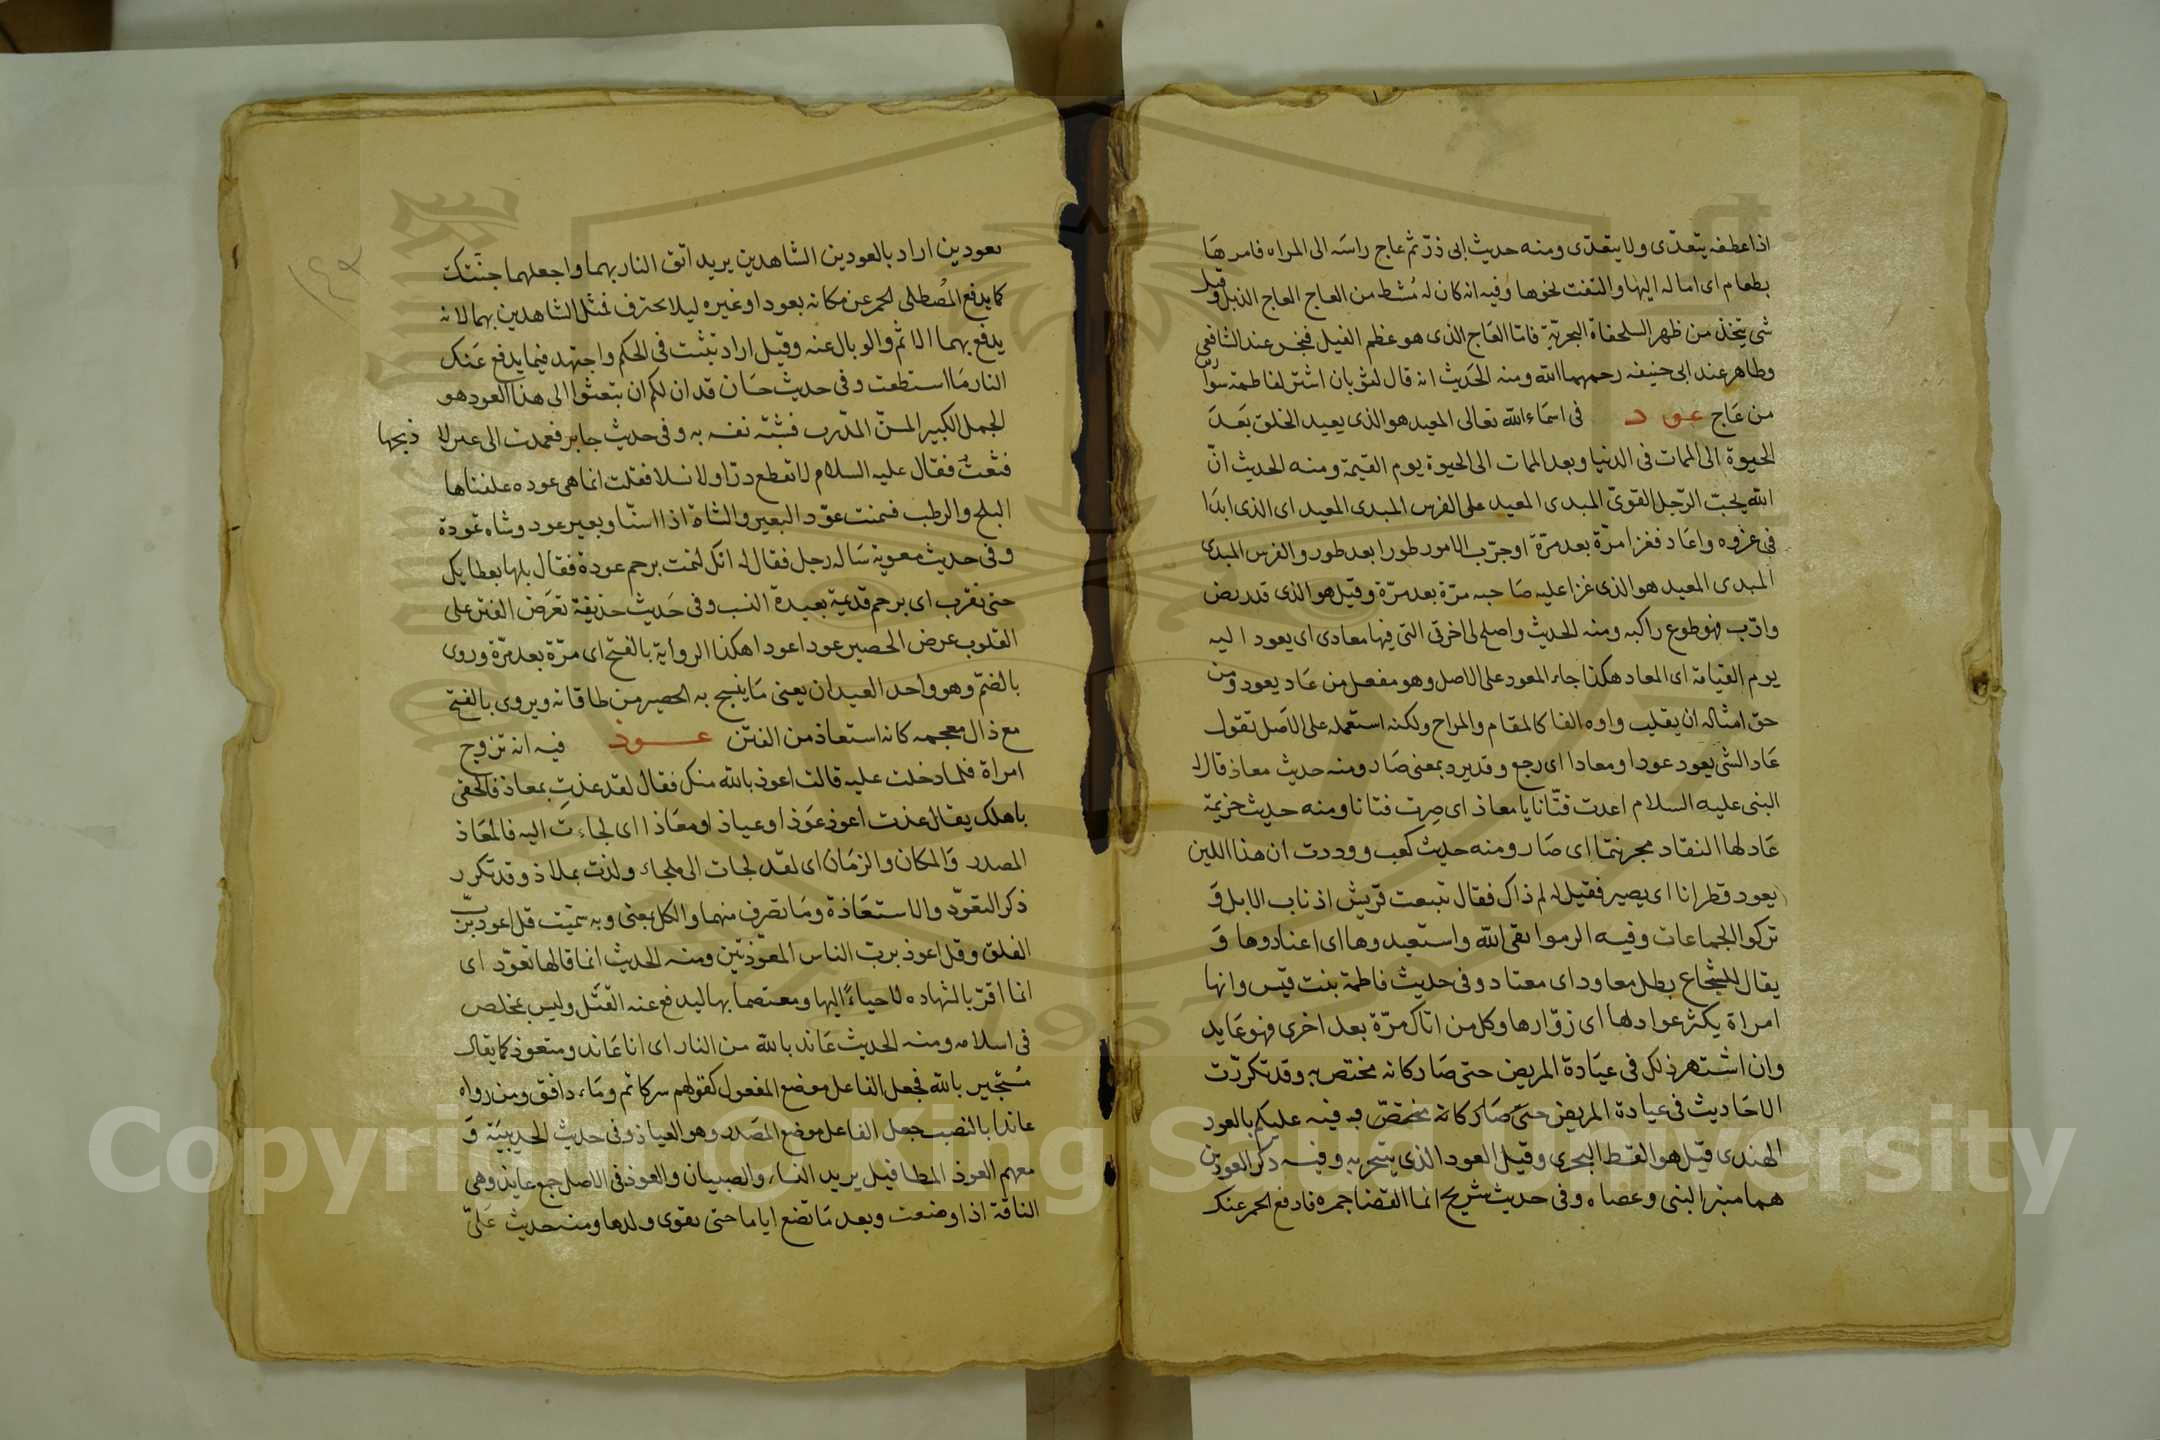 اذا عطفه يتعدّى ولا يتعدّى ومنه حديث ابى ذرّ ثم عاج راسَه الى المراه فامرهَا
بطعام اى اماله اليها والتفت نحوها وفيه انه كان له مُشط من العاج العاج الذبل وقيل
شى يتخذ من ظهر السلحفاة البحريّة فامّا العَاج الذى هو عظم الفيل فنجس عند الشافعى
وطاهر عند ابى حنيفه رحمهما الله ومنه الحَديث انه قال لثوبان اشتر لفاطمة سوارَين
من عَاج عود فى اسمَاء الله تعالى المعيد هو الذى يعيد الخلق بَعدَ
الحيوة الى الممات فى الدنيا وبعد الممات الى الحيوة يوم القيمة ومنه الحديث انّ
الله يحبّ الرّجل القوىّ المبدى المعيد على الفرس المبدى المعيد اى الذى ابدَا
فى غزوه واعَاد فغزا مرّة بعد مرّة او جرّب الامور طورا بعد طور والفرس المبدى
المبدى المعيد هو الذى غزا عليه صَاحبه مرّة بعد مرّة وقيل هو الذى قد ريض
وادّب فهو طوع راكبه ومنه الحديث واصلح لى اخرتى التى فيها معادى اى يعود اليه
يوم القيامة اى المعاد هكذا جاء المعود على الاصل وهو مفعل من عَاد يعود ومن
حق امثاله ان يقلب واوه الفا كالمقام والمراح ولكنه استعمله على الاصَل تقول
عَاد الشى يعود عودا ومعادا اى رجع وقد يرد بمعنى صَار ومنه حديث معاذ قال له
النبى عليه السلام اعدت فتّانا يا معاذ اى صِرت فتانا ومنه حديث خزيمة
عَاد لها النقاد مجرنثما اى صَار ومنه حديث كعب ووددت ان هذا اللبن
يعود قطرانا اى يصير فقيل له لم ذاك فقال تتبعت قريش اذناب الابل وَ
تركوا الجماعات وفيه الزموا تقى الله واستعيدوها اى اعتادوها وَ
يقال للشجاع بطل معاود اى معتاد وفى حديث فاطمة بنت قيس وانها
امراة يكثر عوادها اى زوّارها وكل من اتاك مرّة بعد اخرى فهو عَايد
وان اشتهر ذلك فى عيَادة المريض حتى صَار كانه مختص به وقد تكررّت
الاحَاديث فى عيادة المريض حتىّ صَار كانه مختصّ به وفيه عليكم بالعود
الهندى قيل هو القسط البحرى وقيل العود الذى يتبخر به وفيه ذكر العودين
هما منبر النبى وعصاه وفى حديث شريح انما القضا جمر فادفع الجمر عنك
بعودين اراد بالعودين الشاهدين يريد اتق النار بهما واجعلهما جنّتك
كما يدفع المُصْطلى الجمر عن مكانه بعود او غيره ليلا يحترق فمثل الشاهدين بهما لانه
يدفع بهما الاثم والوبال عنه وقيل اراد تثبت فى الحكم واجتهد فيما يدفع عَنك
النار مَا استطعت وفى حديث حسَان قد ان لكم ان تبعثوا الى هذا العود هو
الجمل الكبير المسنّ المدّرب فشبّه نفسه به وفى حديث جابر فعمدت الى عنز لا ذبحها
فثغتْ فقال عليه السلام لا تقطع درّا ولا نسلا فقلت انما هى عوده علفناها
البلح والرطب فسمنت عوّد البعير والشاة اذا اسنّا وبعير عود وشاه عودة
وفى حديث معوية سَاله رجل فقال له انك لتمت برحم عودة فقال بلها بعطايك
حتى تقرب اى برحم قديمة بعيدة النسب وفى حَديث حذيفة تعرَض الفتن على
القلوب عرض الحصير عودا عودا هكذا الرواية بالفتح اى مرّة بعد مرّة وروى
بالضمّ وهو واحد العيدان يعنى مَا ينسج به الحصير من طاقاته ويروى بالفتح
مع ذال معجمه كانه استعاذ من الفتن عوذ فيه انه تزوج
امراة فلما دخلت عليه قالت اعوذ بالله منك فقال لقد عذتِ بمعاذ فالحقى
باهلك يقال عذت اعوذ عَوذا وعياذا ومعَاذا اى لجاءت اليه فالمعَاذ
المصدر وَالمكان والزمَان اى لقد لجات الى ملجاء ولذت بملاذ وقد تكرر
ذكر التعوّذ والاستعَاذة ومَا تصرف منهما والكل بمعنى وبه سمّيت قل اعوذ بربّ
الفلق وقل اعوذ بربّ الناس المعوّذتين ومنه الحديث انما قالها تعوّذا اى
انما اقرّ بالشهاده لاجياءً اليها ومعتصما بها ليدفع عنه القتل وليس بمخلص
فى اسلامه ومنه الحديث عَائذ بالله من النار اى انا عَائذ ومتعوذ كما يقال
مُستجير بالله فجعل الفاعل موضع المفعول كقولهم سر كاتم ومَاء دافق ومن رواه
عائذا بالنصب جعل الفاعل موضع المصَدر وهو العياذ وفى حديث الحديبيَة وَ
معهم العوذ المطافيل يريد النساء والصبيان والعوذ فى الاصل جمع عايذ وهى
الناقة اذا وضعت وبعد مَا تضع اياما حتى يقوى ولدها ومنه حديث عَلىّ
Copyright © King Saud University